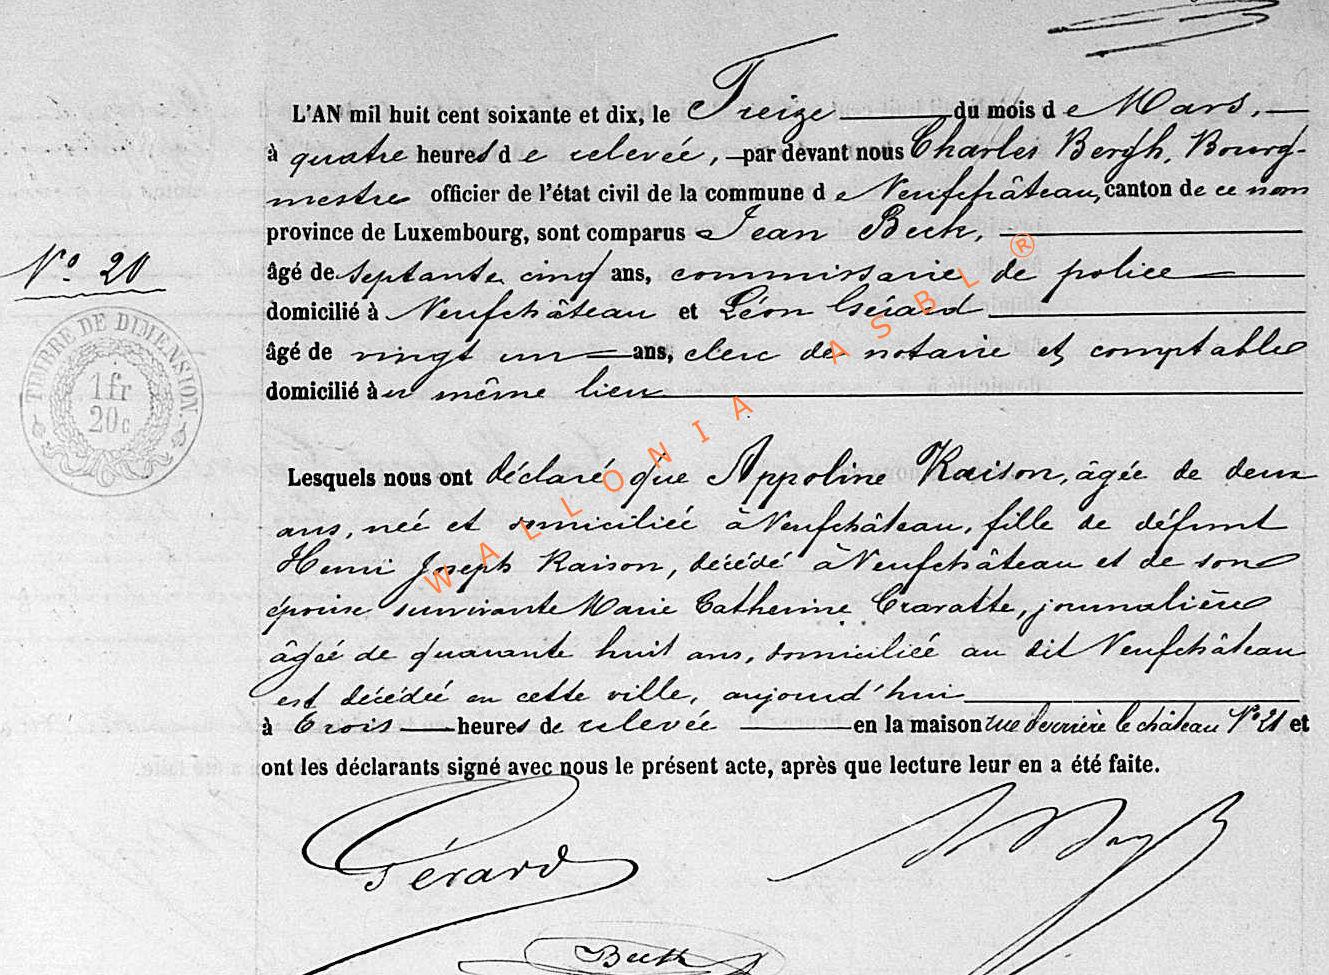 L'AN mil huit cent soixante et dix, le Treize du mois de Mars,
à quatre heures de relevée, par devant nous Charles Bergh, Bourg-
mestre officier de l'état civil de la commune de Neufchâteau, canton de ce nom
province de Luxembourg, sont comparus Jean Beck,
N° 20
âgé de septante cinq ans, commissaire de police
domicilié à Neufchâteau et Léon Gérard
âgé de vingt un ans, clerc de notaire et comptable
domicilié au même lieu
TIMBRE DE DIMENSION
1 fr
20 c
Lesquels nous ont déclaré que Appoline Raison, âgée de deux
ans, née et domiciliée à Neufchâteau, fille de défunt
Henri Joseph Raison, décédé à Neufchâteau et de son
épouse survivante Marie Catherine Cravatte, journalière
âgée de quarante huit ans, domiciliée au dit Neufchâteau
est décédée en cette ville, aujourd'hui
à trois heures de relevée en la maison rue derrière le château N° 21 et
ont les déclarants signé avec nous le présent acte, après que lecture leur en a été faite.
Gérard
Beck
WALLONIA ASBL ®